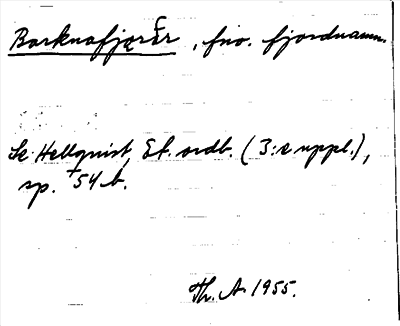 Barknafjǫrðr, fno. fjordnamn.
Se Hellquist, Et. ordb. (3:e uppl.),
sp. †54 b.
Th. A. 1955.